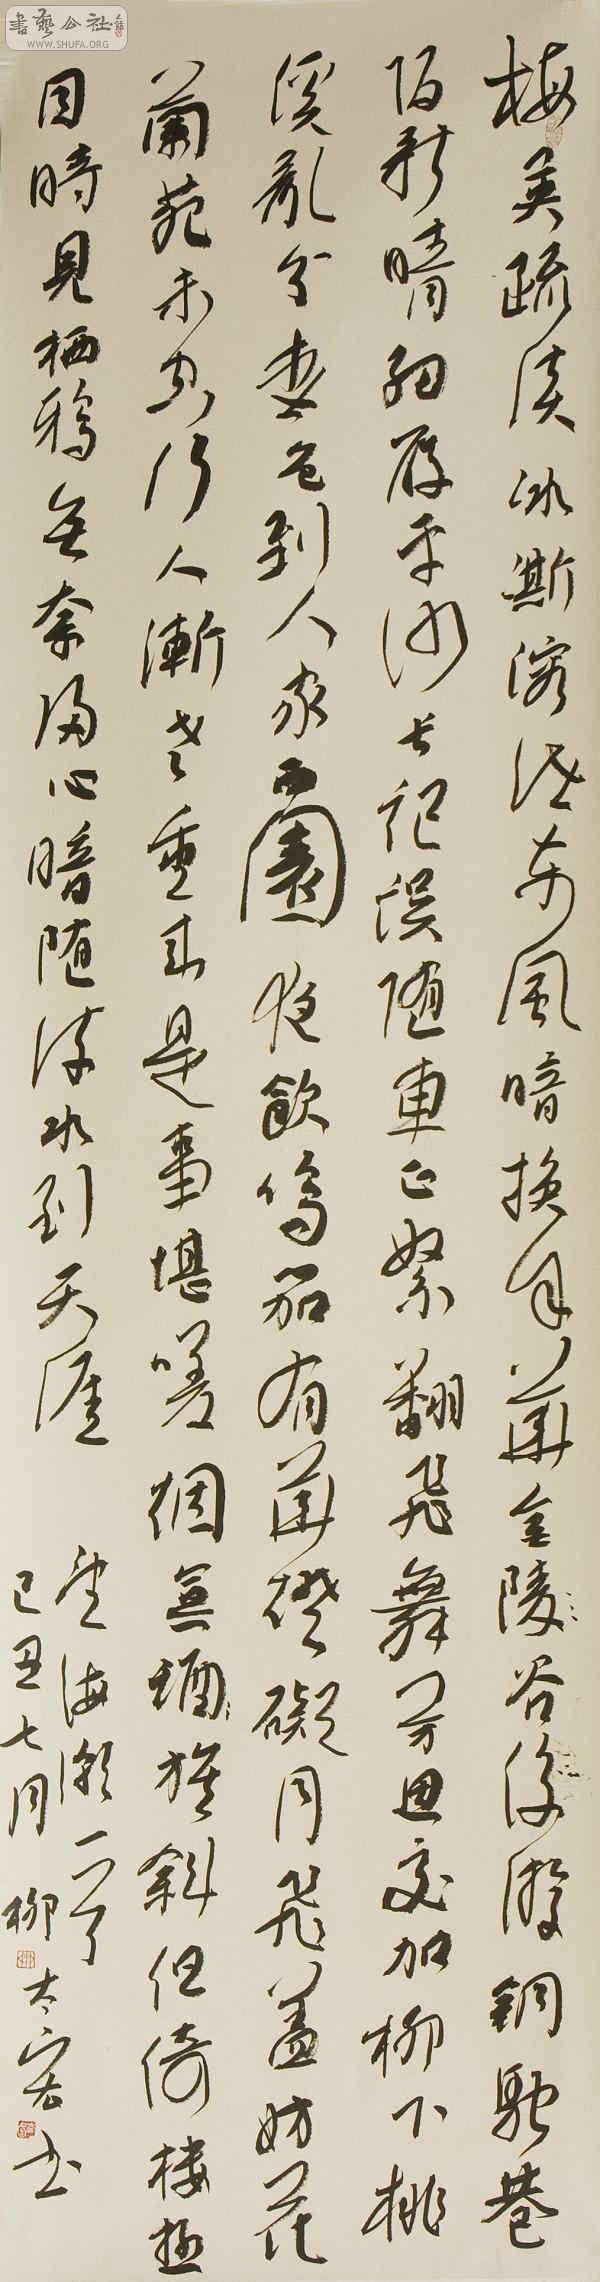 書藝公社
WWW.SHUFA.ORG
梅英疏淡冰澌溶泄東風暗換年華金陵谷俊游銅駝巷
陌新晴細履平沙長記誤隨車正絮翻飛舞芳思交加柳下桃
溪亂分春色到人家西園夜飲鳴笳有華燈礙月飛蓋妨花
蘭苑未空行人漸老重來是事堪嗟烟酒旗斜但倚樓極
目時見栖鴉無奈歸心暗随流水到天涯
望海潮
己丑七月柳書